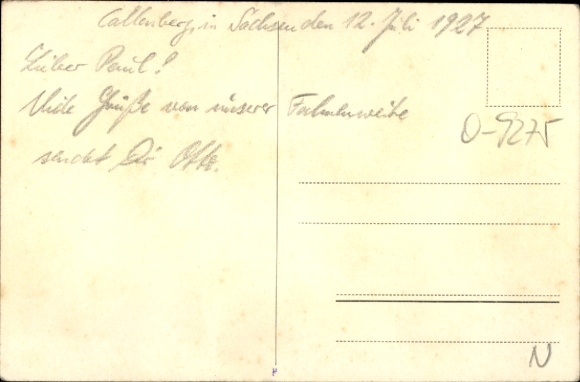 Callenberg, in Sachsen den 12. Juli 1927
Lieber Paul!
Viele Grüße von unserer Fahnenweihe
sendet Dir Otto.
O-9275
N